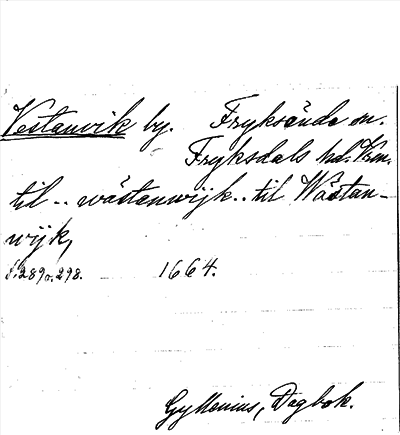 Vestanvik by. Fryksände sn.
Fryksdals hd. Vrm.
til .. wästanwijk .. til Wästan-
wijk,
s. 289 o. 298. 1664.
Gyllenius, Dagbok.